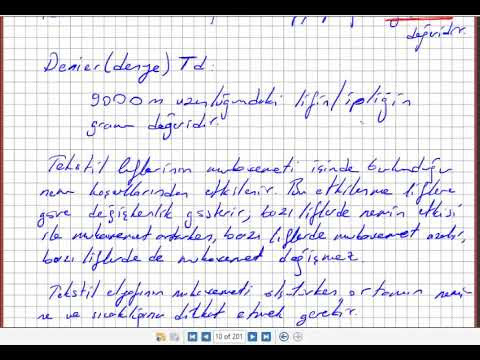 değeridir.
Denier (denye) Td:
9000 m uzunluğundaki lifin/ipliğin
gram değeridir.
Tekstil liflerinin mukavemeti içinde bulunduğu
nem koşullarından etkilenir. Bu etkilenme liflere
göre değişkenlik gösterir, bazı liflerde nemin etkisi
ile mukavemet artarken, bazı liflerde mukavemet azalır,
bazı liflerde de mukavemet değişmez
Tekstil elyafının mukavemeti ölçülürken ortamın nemi
ne ve sıcaklığına dikkat etmek gerekir.
10 of 201